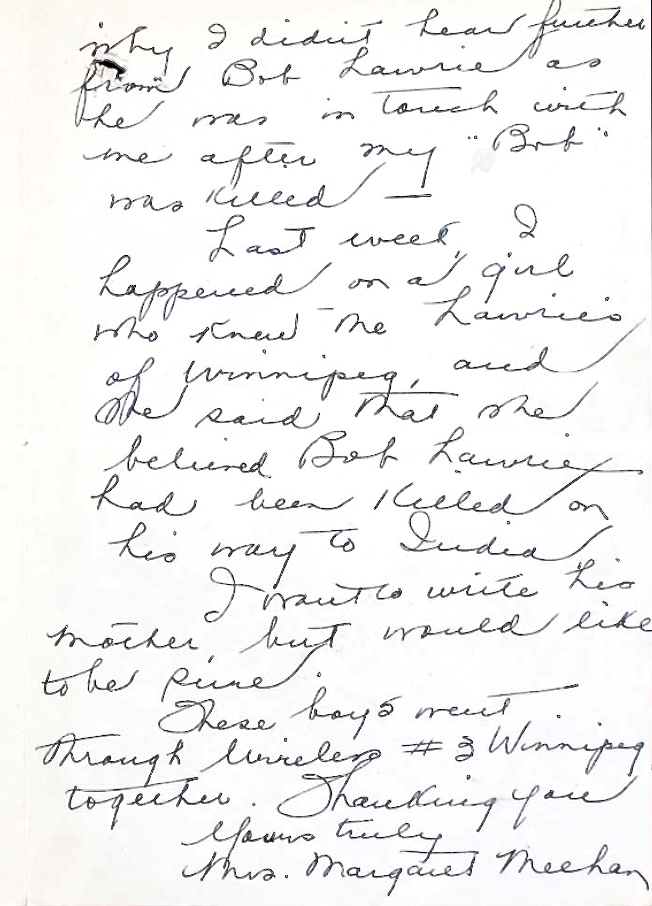 why I didn't hear further
from Bob Lawrie as
he was in touch with
me after my "Bob"
was killed —
Last week, I
happened on a girl
who knew the Lawries
of Winnipeg, and
she said that she
believed Bob Lawrie
had been killed on
his way to India
I want to write his
mother, but would like
to be sure.
These boys went
through Wireless #3 Winnipeg
together. Thanking you
Yours truly
Mrs. Margaret Meehan